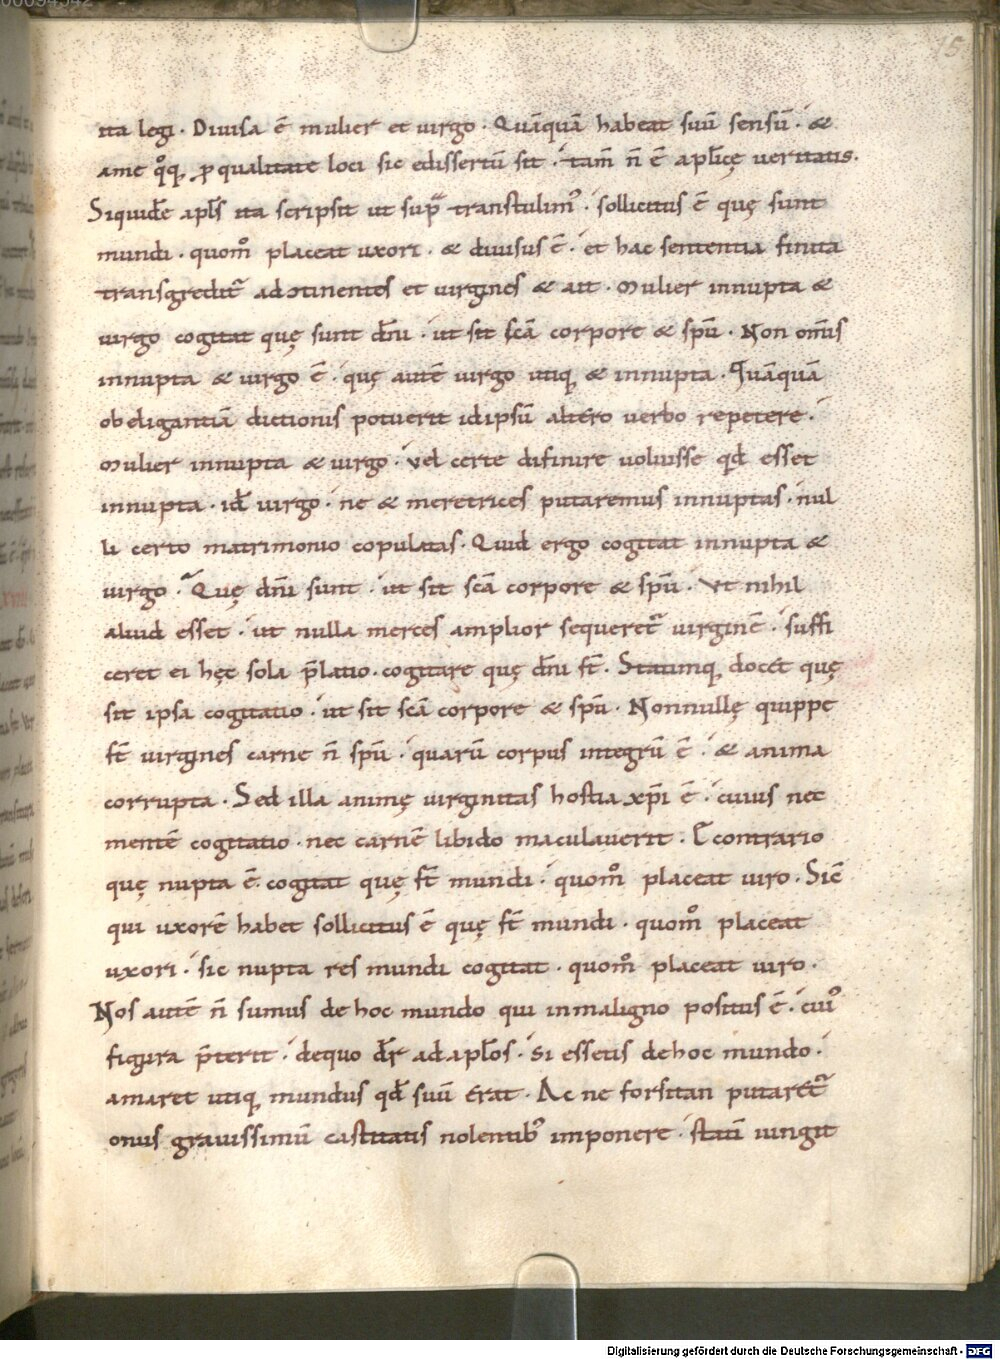 00094542
15
ita legi · Diuisa ē mulier et uirgo · Quāquā habeat suū sensū · &
a me q̊q; ꝓ qualitate loci sic edissertū sit · tam̄ n̄ ē aplicę ueritatis ·
Siquidē apls ita scripsit ut supͣ transtulim᾽ · sollicitus ē quę sunt
mundi · quom̊ placeat uxori · & diuisus ē · et hac sententia finita
transgredit᷑ ad ↄtinentes et uirgines & ait · Mulier innupta &
uirgo cogitat quę sunt dn̄i · ut sit scā corpore & spū · Non om̄is
innupta & uirgo ē · quę autē uirgo utiq; & innupta · Quāquā
ob eligantiā dictionis potuerit id ipsū altero uerbo repetere ·
Mulier innupta & uirgo · vel certe difinire uoluisse qd̄ esset
innupta · id̄ uirgo · ne & meretrices putaremus innuptas · nul
li certo matrimonio copulatas · Quid ergo cogitat innupta &
uirgo · Quę dn̄i sunt · ut sit scā corpore & spū · Vt nihil
aliud esset · ut nulla merces amplior sequeret᷑ uirginē · suffi
ceret ei hęc sola p̄latio · cogitare quę dn̄i st̄ · Statimq; docet quę
sit ipsa cogitatio · ut sit scā corpore & spū · Nonnullę quippe
st̄ uirgines carne n̄ spū · quarū corpus integrū ē · & anima
corrupta · Sed illa animę uirginitas hostia xp̄i ē · cuius nec
mentē cogitatio · nec carnē libido maculauerit · E contrario
quę nupta ē · cogitat quę st̄ mundi · quom̊ placeat uiro · Sic̄
qui uxorē habet sollicitus ē quę st̄ mundi · quom̊ placeat
uxori · sic nupta res mundi cogitat · quom̊ placeat uiro ·
Nos autē n̄ sumus de hoc mundo qui in maligno positus ē · cui᾽
figura p̄terit · de quo dr̄ ad aplos · Si essetis de hoc mundo ·
amaret utiq; mundus qd̄ suū erat · Ac ne forsitan putaret᷑
onus grauissimū castitatis nolentib᾽ imponere · statī iungit
Digitalisierung gefördert durch die Deutsche Forschungsgemeinschaft - DFG